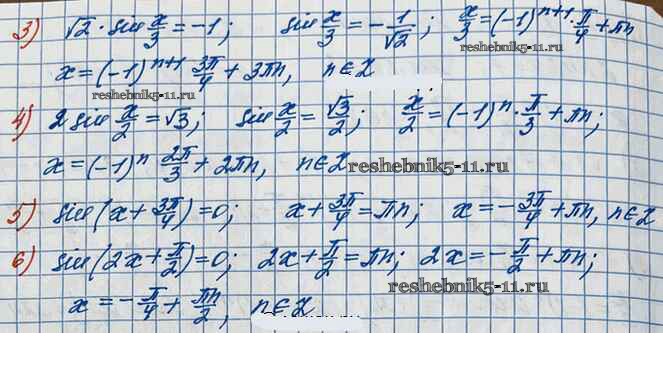 3) √2 · sin x/3 = -1; sin x/3 = - 1/√2; x/3 = (-1)^(n+1) · π/4 + πn
reshebnik5-11.ru
x = (-1)^(n+1) 3π/4 + 3πn, n∈Z
reshebnik5-11.ru
4) 2 sin x/2 = √3; sin x/2 = √3/2; x/2 = (-1)^n · π/3 + πn;
x = (-1)^n 2π/3 + 2πn, n∈Z
reshebnik5-11.ru
5) sin(x + 3π/4) = 0; x + 3π/4 = πn; x = - 3π/4 + πn, n∈Z
6) sin(2x + π/2) = 0; 2x + π/2 = πn; 2x = - π/2 + πn;
reshebnik5-11.ru
x = - π/4 + πn/2, n∈Z